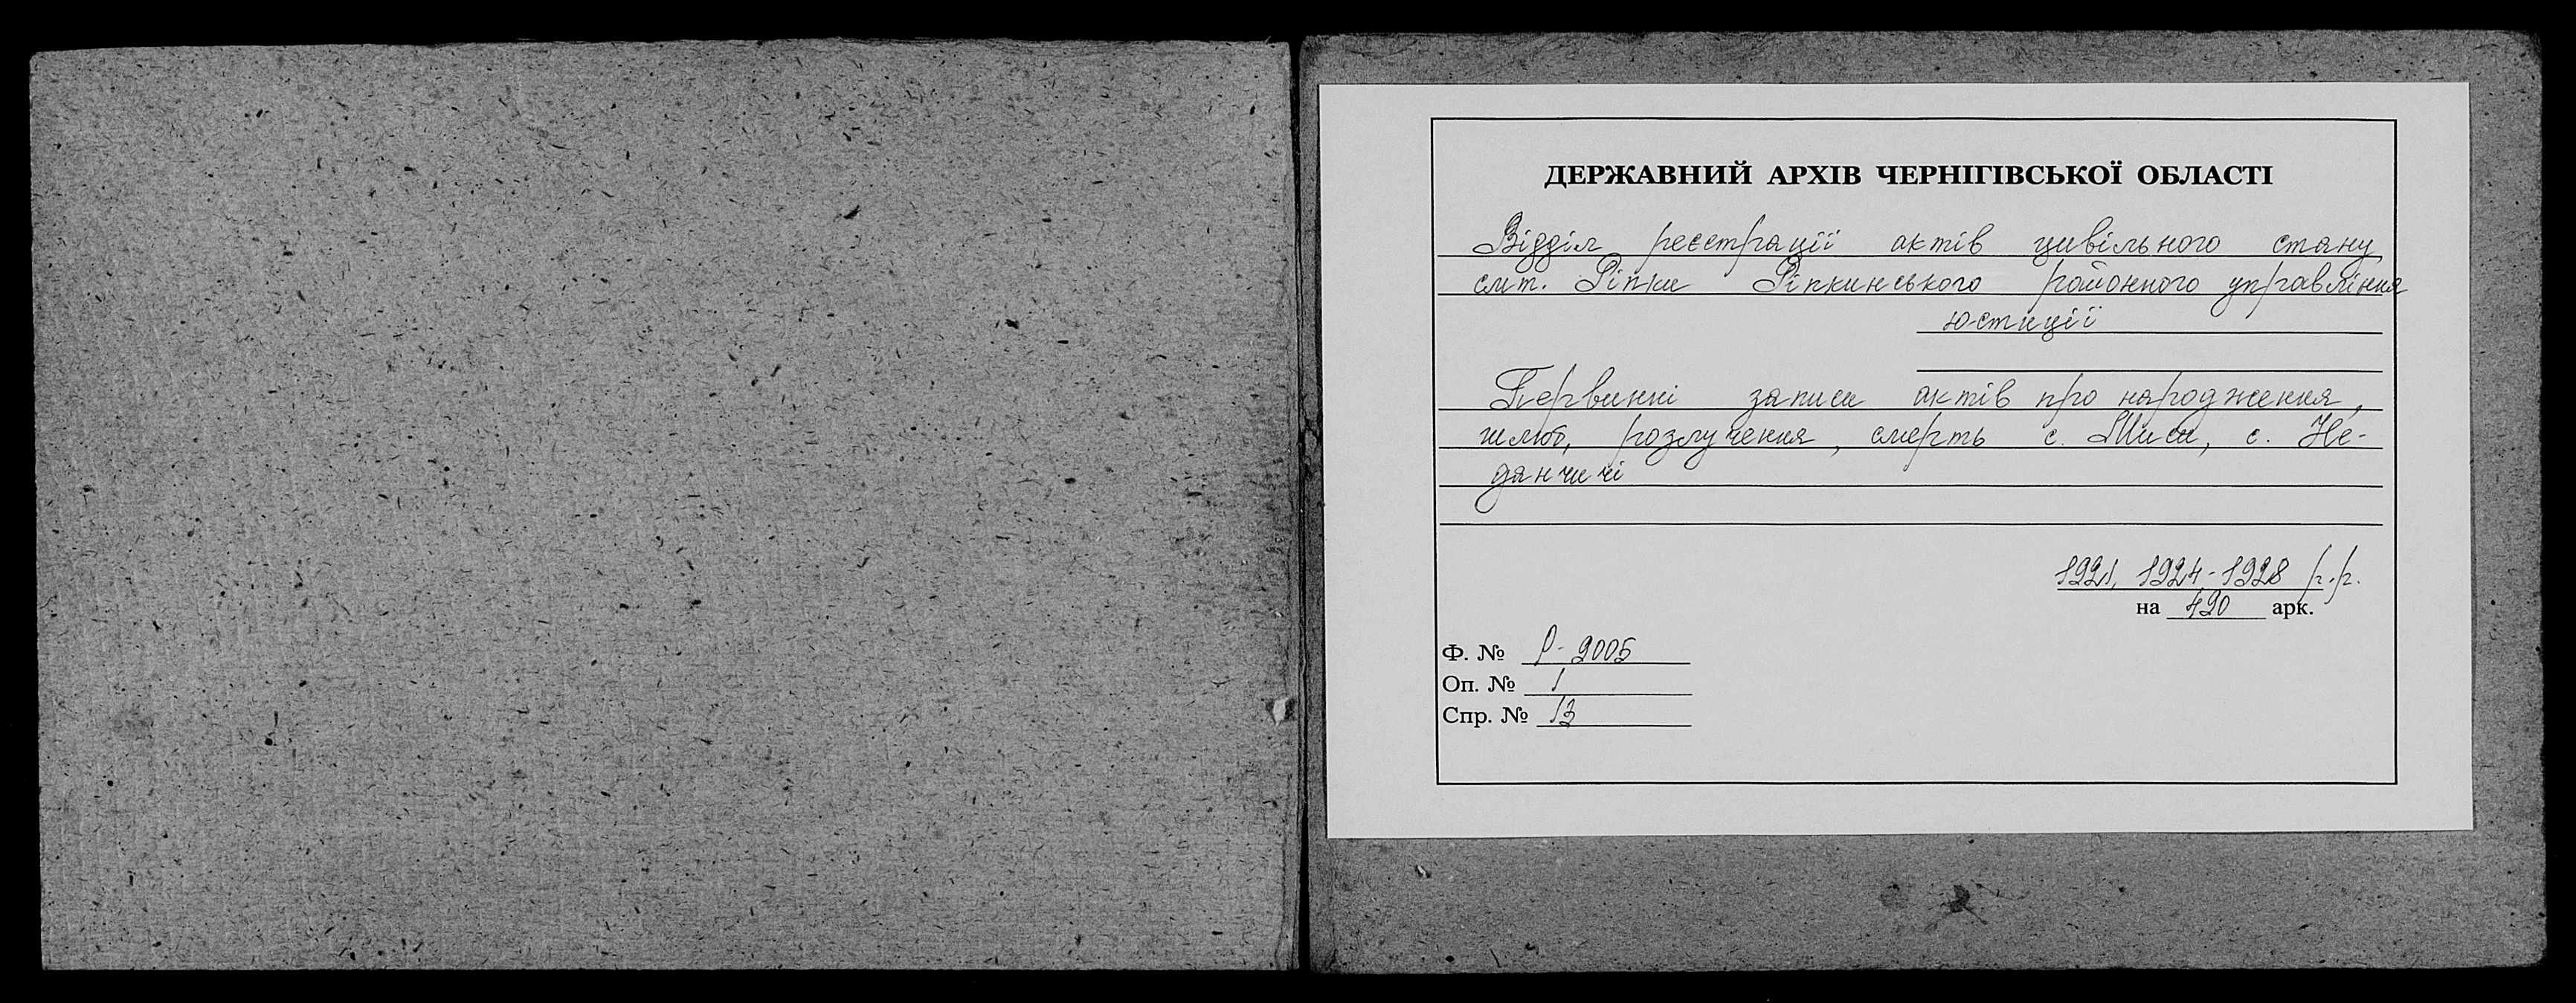 ДЕРЖАВНИЙ АРХІВ ЧЕРНІГІВСЬКОЇ ОБЛАСТІ
Відділ реєстрації актів цивільного стану
смт. Ріпки Ріпкинського районного управління
юстиції
Первинні записи актів про народження,
шлюб, розлучення, смерть с. Миси, с. Не-
данчичі
1921, 1924-1928 р.р.
на 490 арк.
Ф. № Р-9005
Оп. № 1
Спр. № 13